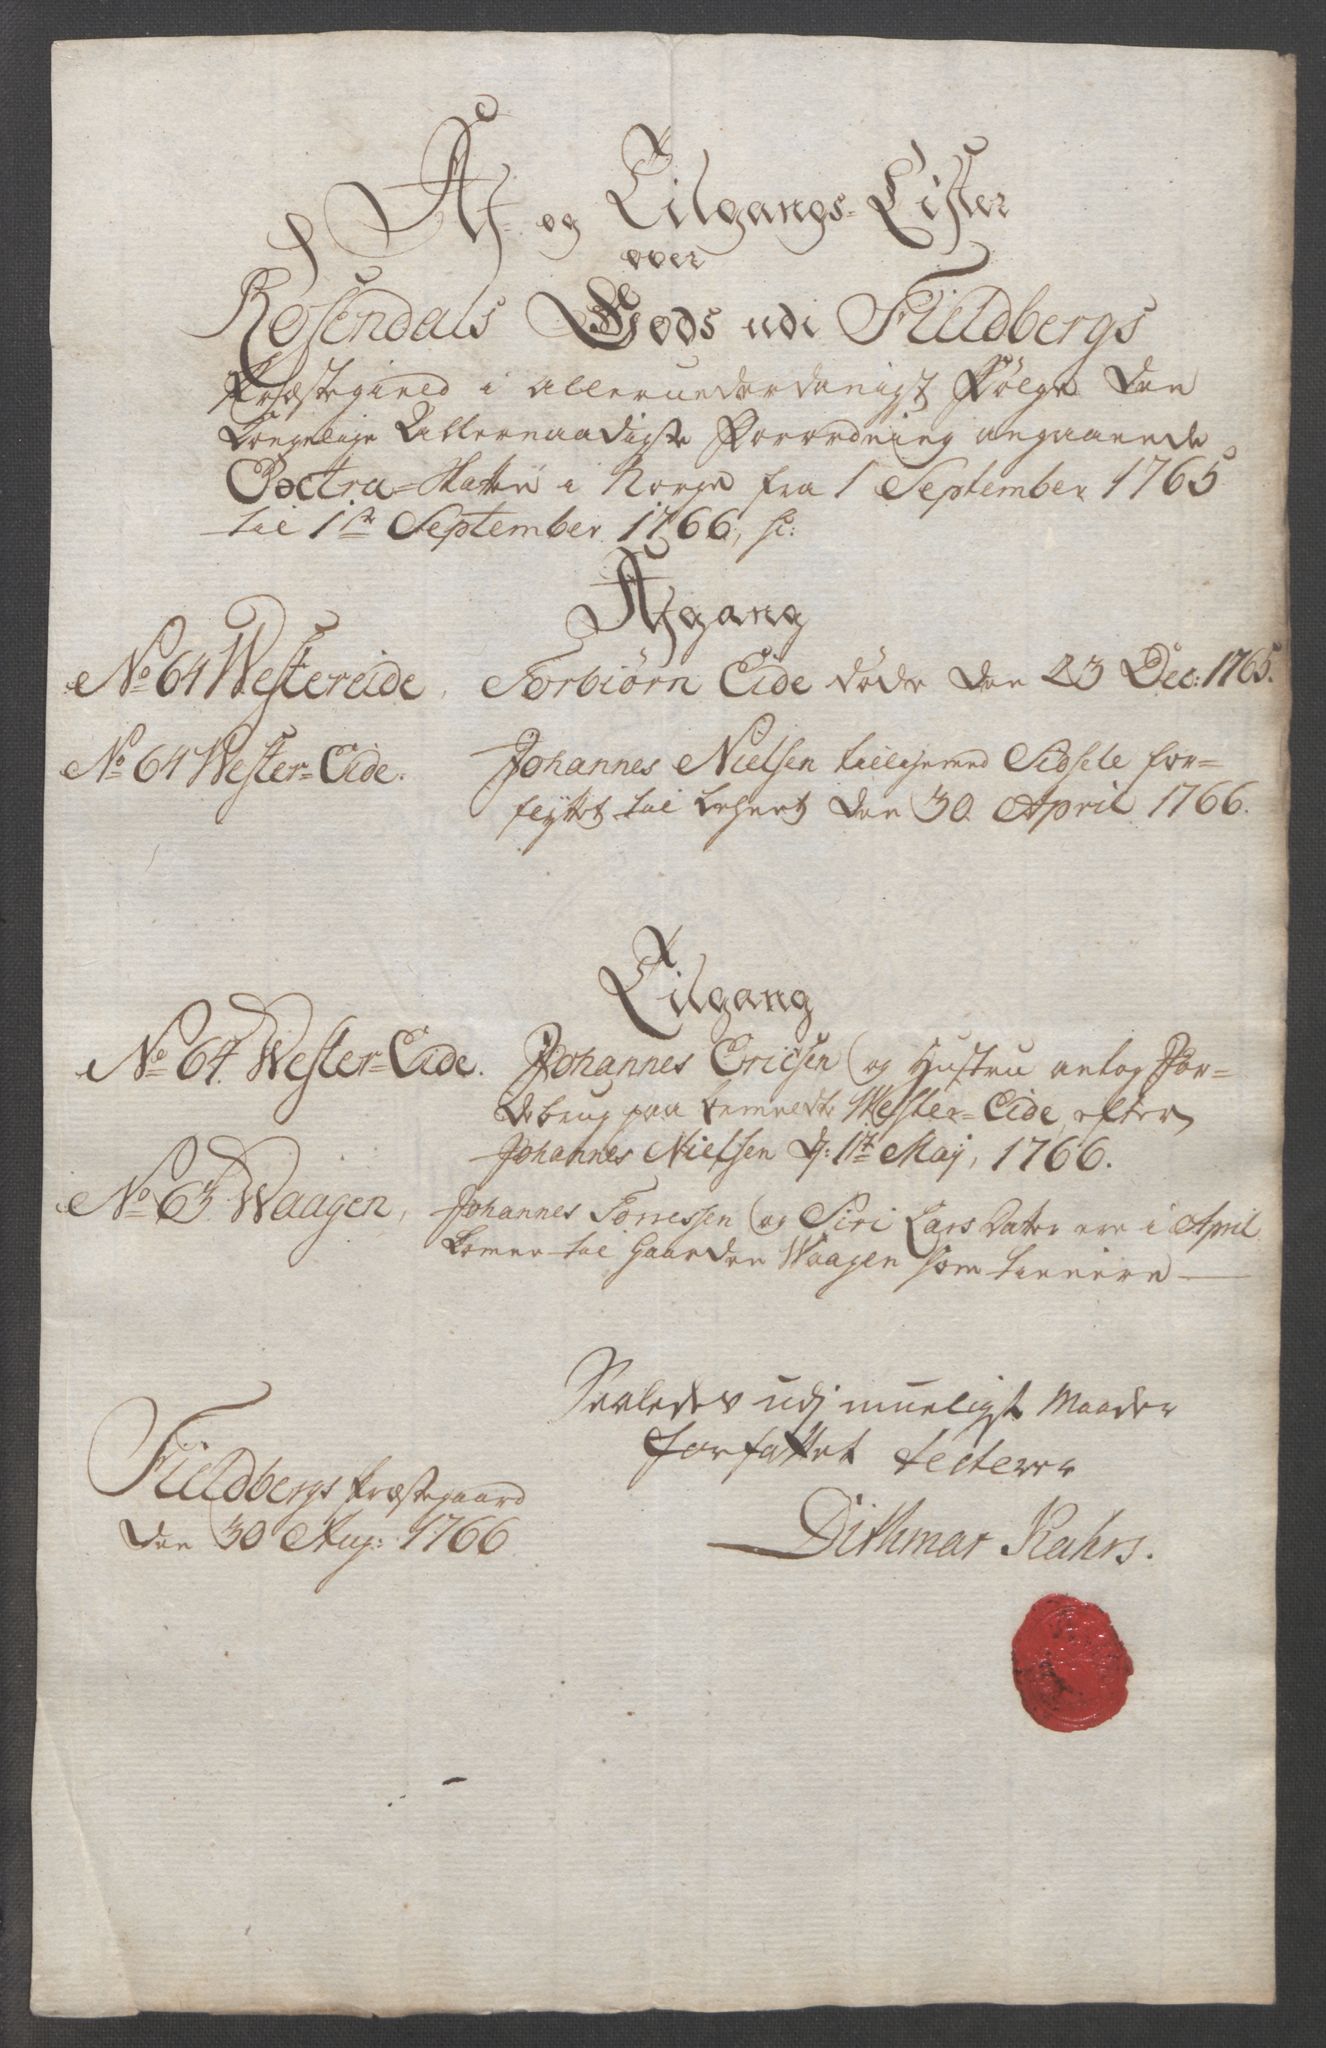 Af- og Tilgangs-Lister
over
Rosendals Gods udi Fieldbergs
Præstegield i allerunderdanigst Følge den
Kongelige Allernaadigste Forordning angaaende
Extra-Skatten i Norge fra 1 September 1765
til 1ste September 1766, sc:
Afgang
No 64 Westereide, Torbiörn Eide døde den 23 Dec: 1765.
No 64 Wester-Eide. Johannes Nielsen tilligemed Sidsele for-
flyttet til den 30. April 1766.
Tilgang
No 64. Wester-Eide. Johannes Ericsen og Hustru antog Jor-
debrug paa bemeldte Wester-Eide, efter
Johannes Nielsen d: 1te Maij, 1766.
No 63. Waagen, Johannes Torressen og Siri Lars Datter ere i April
komne til Gaarden Waagen som tienere
Saaledes udj mueligste Maader
forfattet testerer
Fieldbergs Præstegaard
den 30 Aug: 1766
Dithmar Kahrs.